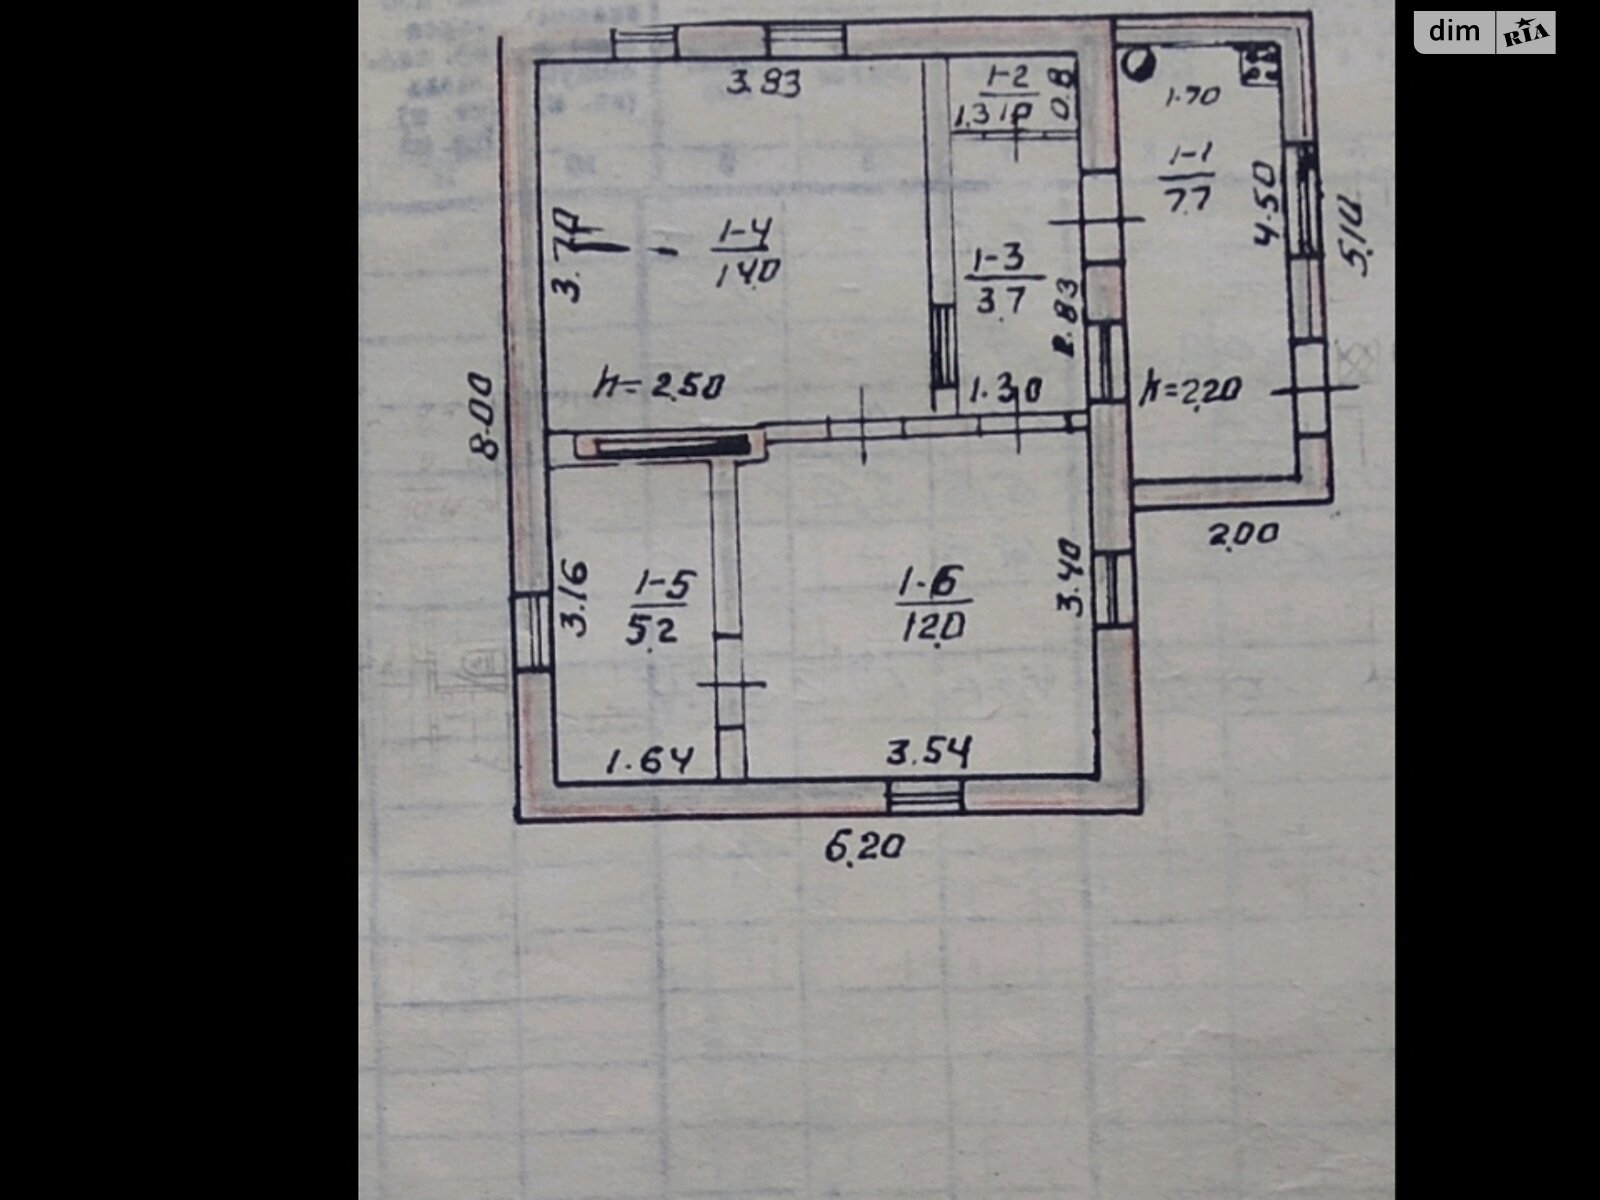 dim RIA
3.93
1-2
1.3 1.0
0.8
1.70
1-1
7.7
4.50
5.10
3.70
1-4
14.0
1-3
3.7
2.83
h=2.50
1.30
h=2.20
8.00
2.00
3.16
1-5
5.2
1-6
12.0
3.40
1.64
3.54
6.20